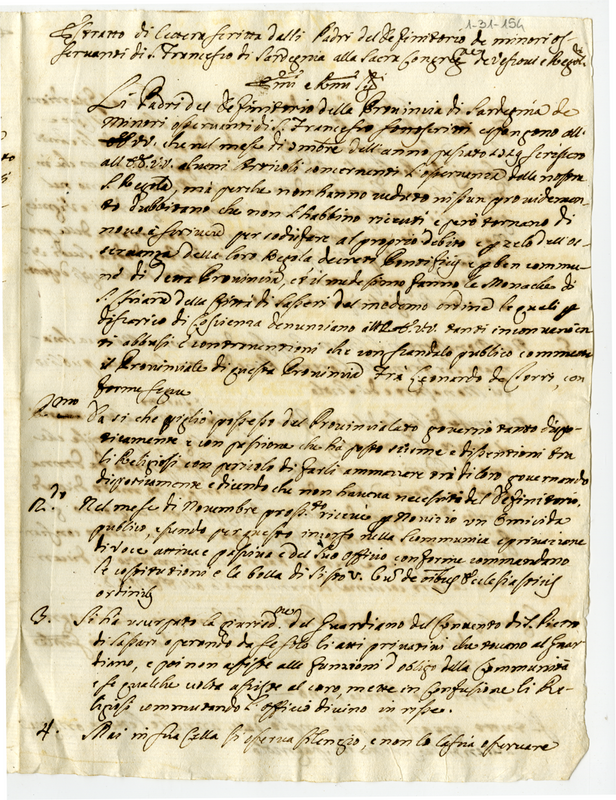 1-31-154
Estratto di lettera scritta dalli Padri del Definitorio de minori os-
servanti di S. Francesco di Sardegna alla Sacra Congreg.ne de Vescovi e Regol.
Emi e Rmi
Li Padri del Definitorio della Provincia di Sardegna de
Minori osservanti di S. Francesco sottoscritti espongono all'
che nel mese di 9mbre dell'anno passato scrissero
all' EE. VV. alcuni Articoli concernenti l'osservanza della nostra
S. Regola, ma perche non hanno veduto nissun provedimen-
to dubbitano che non l'habbino ricevuti e però tornano di
novo à scrivere per sodisfare al proprio debito e zelo dell'os-
servanza della loro Regola decreti Pontificij e ben commu-
ne di detta Provincia, et il medesimo fanno le Monache di
S. Chiara della Città di Sassari del medemo ordine le quali p
discarico di Coscienza denunziano all' EE. VV. tanti inconvenien-
ti abbusi e contraventioni che con scandalo publico commette
il Provinciale di questa Provincia Fra Leonardo de
forme segue
Da si che pigliò possesso del Provincialato governò tanto dispo-
ticamente e con passione che ha posto scisme e dissentioni tra
li Religiosi con pericolo di farli ammazzare tra di loro governando
dispoticamente e dicendo che non haveva necessità del Definitorio.
2.do Nel mese di Novembre pross.º ricevè p Novizio un Omicida
publico, essendo per questo incorso nella Scommunica e privazione
di voce attiva e passiva e del suo Officio conforme commandano
le costitutioni e la bolla di Sisto V.
3. Si ha usurpato la del Guardiano del convento di S. Pietro
di Sassari operando da se solo li atti privativi che toccano al Guar-
diano, e poi non assiste alle funzioni d'obligo della Communità
e se qualche volta assiste al coro mette in Confusione li Re-
ligiosi commutando l'officio divino in risse.
4. Mai in sua Cella si osserva silenzio, e non lo lascia osservare